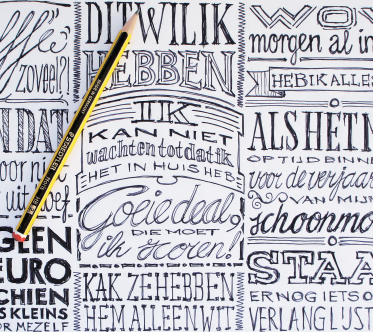 zoveel?!
DAT
voor
uit
GEEN
EURO
KLEINS
VOOR MEZELF
DIT WIL IK
HEBBEN
IK
KAN NIET
wachten tot dat ik
HET IN HUIS HEB
Goeie deal,
DIE MOET
ik scoren!
KAK ZE HEBBEN
HEM ALLEEN WIT
WOW
morgen al in
HEB IK ALLES
ALS HET M
OP TIJD BINNE
voor de verjaar
VAN MIJN
schoonmo
STAA
ER NOG IETS O
VERLANGLIJST
STAEDTLER